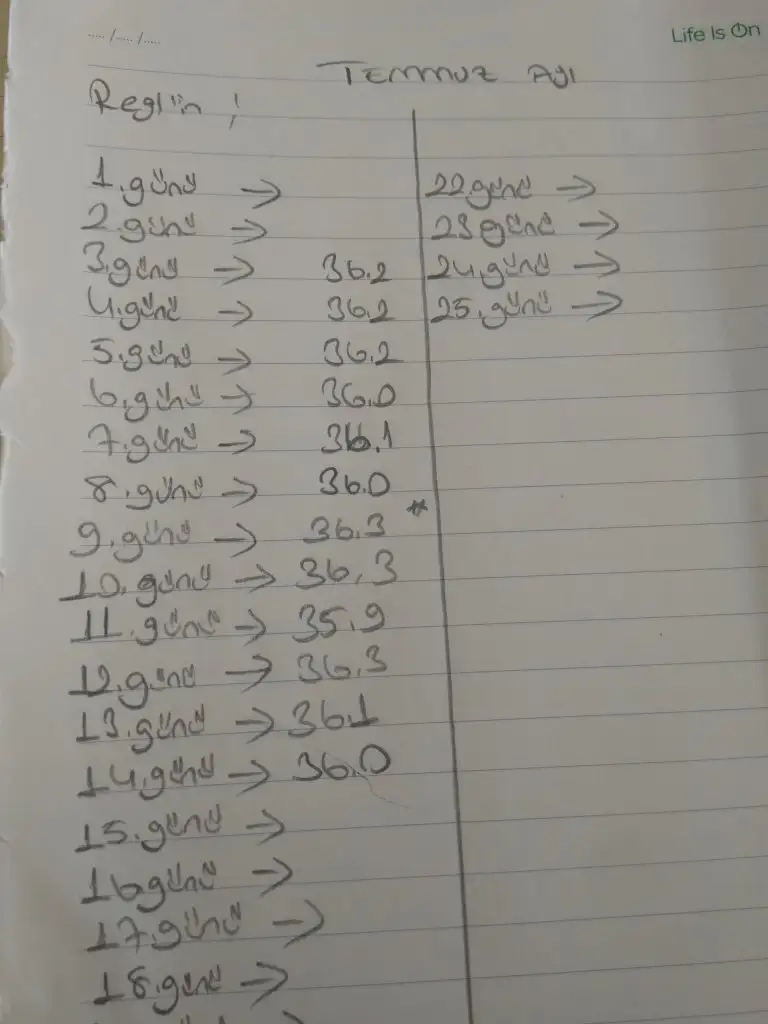 ..... /..... /.....
Life Is On
TEMMUZ AYI
Reglin ;
1.günü →
2.günü →
3.günü → 36.2
4.günü → 36.2
5.günü → 36.2
6.günü → 36.0
7.günü → 36.1
8.günü → 36.0
9.günü → 36.3 *
10.günü → 36.3
11.günü → 35.9
12.günü → 36.3
13.günü → 36.1
14.günü → 36.0
15.günü →
16günü →
17.günü →
18.günü →
22günü →
23günü →
24.günü →
25.günü →